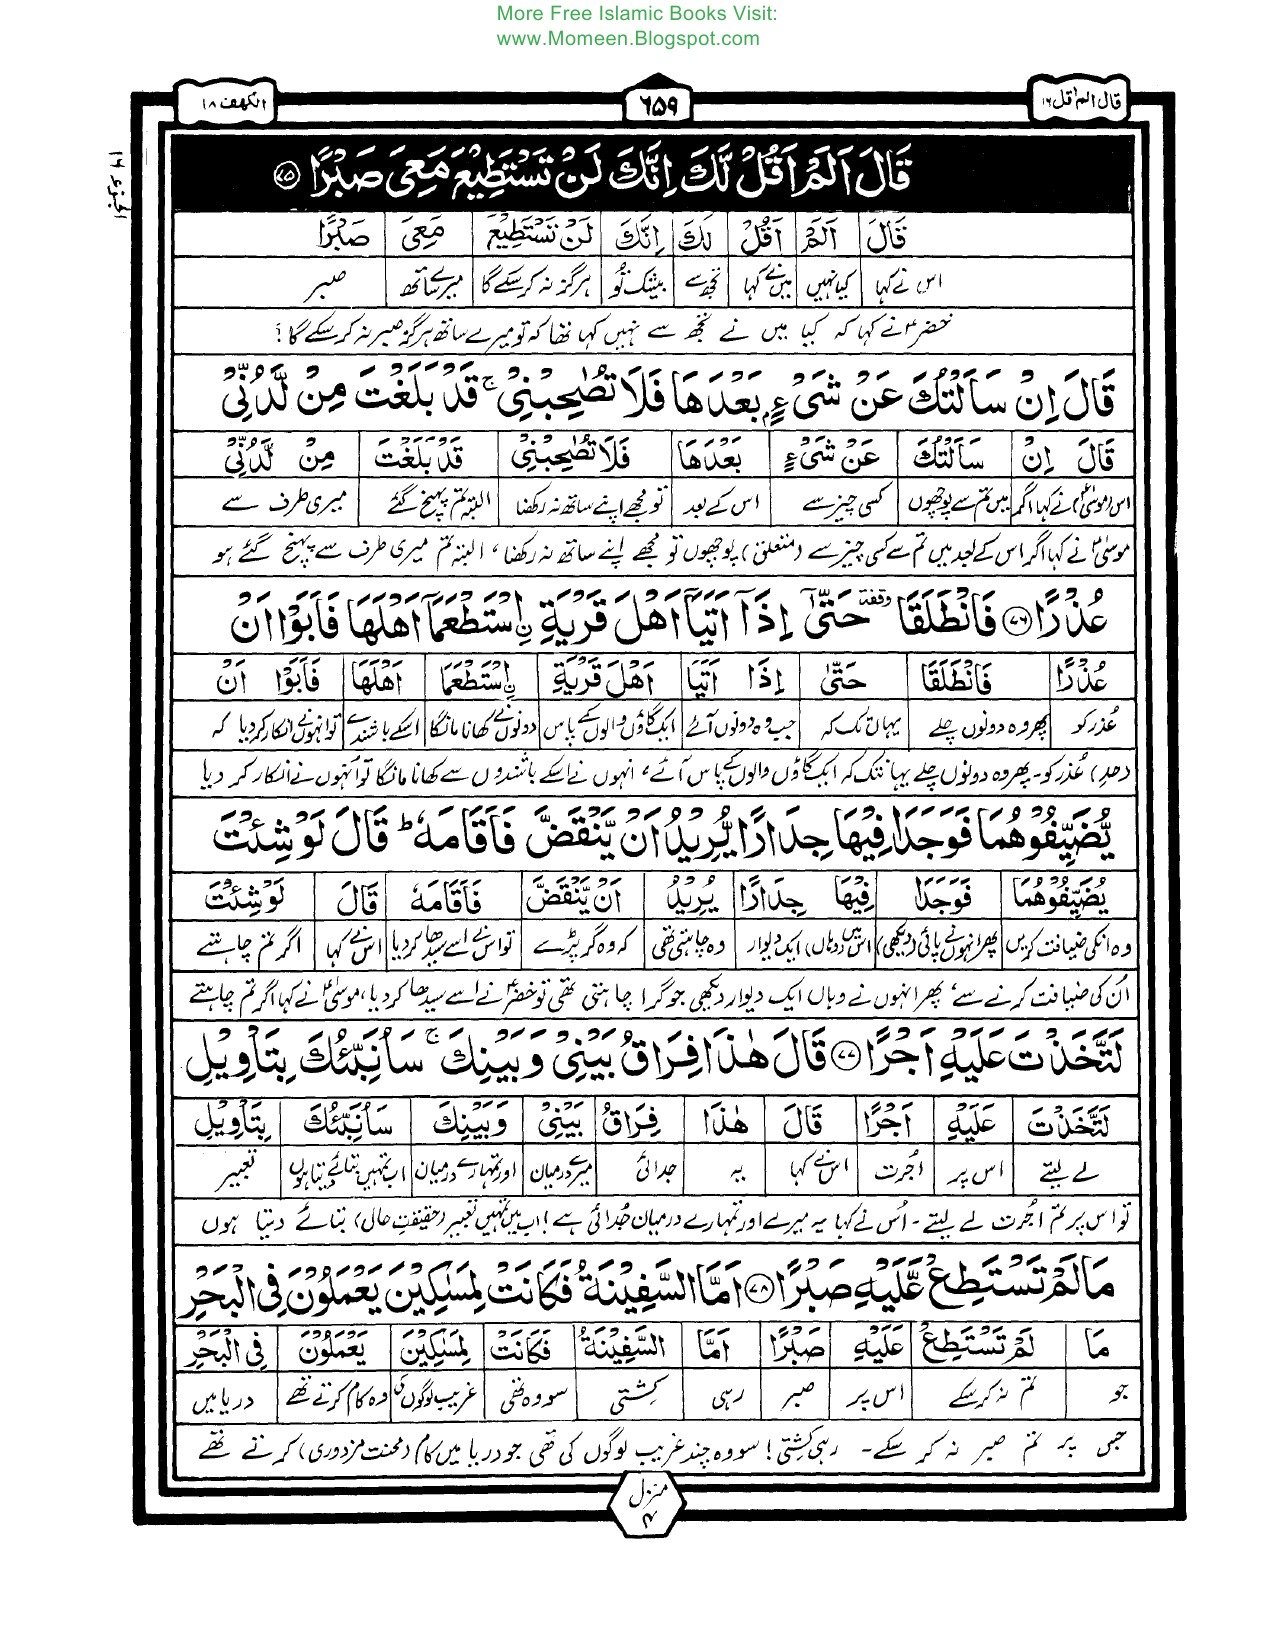 More Free Islamic Books Visit:
www.Momeen.Blogspot.com
قال الم اقل ١٦
٦٥٩
الكهف ١٨
الجزء ١٦
قَالَ اَلَمْ اَقُلْ لَّكَ اِنَّكَ لَنْ تَسْتَطِيْعَ مَعِىَ صَبْرًا ﴿٧٥﴾
قَالَ اَلَمْ اَقُلْ لَكَ اِنَّكَ لَنْ تَسْتَطِيْعَ مَعِىَ صَبْرًا
اس نے کہا کیا نہیں میں نے کہا تجھ سے بیشک تُو ہرگز نہ کر سکے گا میرے ساتھ صبر
خضرؑ نے کہا کہ کیا میں نے تجھ سے نہیں کہا تھا کہ تو میرے ساتھ ہرگز صبر نہ کر سکے گا؟
قَالَ اِنْ سَاَلْتُكَ عَنْ شَىْءٍۭ بَعْدَهَا فَلَا تُصٰحِبْنِىْ ۚ قَدْ بَلَغْتَ مِنْ لَّدُنِّىْ
قَالَ اِنْ سَاَلْتُكَ عَنْ شَىْءٍ بَعْدَهَا فَلَا تُصٰحِبْنِىْ قَدْ بَلَغْتَ مِنْ لَّدُنِّىْ
اس (موسیٰؑ) نے کہا اگر میں تم سے پوچھوں کسی چیز سے اس کے بعد تو مجھے اپنے ساتھ نہ رکھنا البتہ تم پہنچ گئے میری طرف سے
موسیٰؑ نے کہا اگر اس کے بعد میں تم سے کسی چیز سے (متعلق) پوچھوں تو مجھے اپنے ساتھ نہ رکھنا، البتہ تم میری طرف سے پہنچ گئے ہو
عُذْرًا ﴿٧٦﴾ فَانْطَلَقَا وقفة حَتّٰٓى اِذَآ اَتَيَآ اَهْلَ قَرْيَةِ ِۨاسْتَطْعَمَآ اَهْلَهَا فَاَبَوْا اَنْ
عُذْرًا فَانْطَلَقَا حَتّٰٓى اِذَا اَتَيَآ اَهْلَ قَرْيَةِ ِۨاسْتَطْعَمَا اَهْلَهَا فَاَبَوْا اَنْ
عُذر کو پھر وہ دونوں چلے یہاں تک کہ جب وہ دونوں آئے ایک گاؤں والوں کے پاس دونوں نے کھانا مانگا اسکے باشندے تو انہوں نے انکار کر دیا کہ
(حدِ) عُذر کو۔ پھر وہ دونوں چلے یہانتک کہ ایک گاؤں والوں کے پاس آئے، انہوں نے اسکے باشندوں سے کھانا مانگا تو اُنہوں نے انکار کر دیا
يُّضَيِّفُوْهُمَا فَوَجَدَا فِيْهَا جِدَارًا يُّرِيْدُ اَنْ يَّنْقَضَّ فَاَقَامَهٗ ؕ قَالَ لَوْ شِئْتَ
يُضَيِّفُوْهُمَا فَوَجَدَا فِيْهَا جِدَارًا يُرِيْدُ اَنْ يَّنْقَضَّ فَاَقَامَهٗ قَالَ لَوْ شِئْتَ
وہ انکی ضیافت کریں پھر انہوں نے پائی (دیکھی) اس میں (وہاں) ایک دیوار وہ چاہتی تھی کہ وہ گر پڑے تو اس نے اسے سیدھا کر دیا اس نے کہا اگر تم چاہتے
اُن کی ضیافت کرنے سے، پھر انہوں نے وہاں ایک دیوار دیکھی جو گرا چاہتی تھی تو خضرؑ نے اسے سیدھا کر دیا، موسیٰؑ نے کہا اگر تم چاہتے
لَتَّخَذْتَ عَلَيْهِ اَجْرًا ﴿٧٧﴾ قَالَ هٰذَا فِرَاقُ بَيْنِىْ وَبَيْنِكَ ۚ سَاُنَبِّئُكَ بِتَاْوِيْلِ
لَتَّخَذْتَ عَلَيْهِ اَجْرًا قَالَ هٰذَا فِرَاقُ بَيْنِىْ وَبَيْنِكَ سَاُنَبِّئُكَ بِتَاْوِيْلِ
لے لیتے اس پر اُجرت اس نے کہا یہ جدائی میرے درمیان اور تمہارے درمیان اب تمہیں بتائے دیتا ہوں تعبیر
تو اس پر تم اُجرت لے لیتے۔ اُس نے کہا یہ میرے اور تمہارے درمیان جُدائی ہے! اب میں تمہیں تعبیر (حقیقتِ حال) بتائے دیتا ہوں
مَا لَمْ تَسْتَطِعْ عَّلَيْهِ صَبْرًا ﴿٧٨﴾ اَمَّا السَّفِيْنَةُ فَكَانَتْ لِمَسٰكِيْنَ يَعْمَلُوْنَ فِى الْبَحْرِ
مَا لَمْ تَسْتَطِعْ عَلَيْهِ صَبْرًا اَمَّا السَّفِيْنَةُ فَكَانَتْ لِمَسٰكِيْنَ يَعْمَلُوْنَ فِى الْبَحْرِ
جو تم نہ کر سکے اس پر صبر رہی کشتی سو وہ تھی غریب لوگوں کی وہ کام کرتے تھے دریا میں
جس پر تم صبر نہ کر سکے۔ رہی کشتی! سو وہ چند غریب لوگوں کی تھی جو دریا میں کام (محنت مزدوری) کرتے تھے
منزل
۴